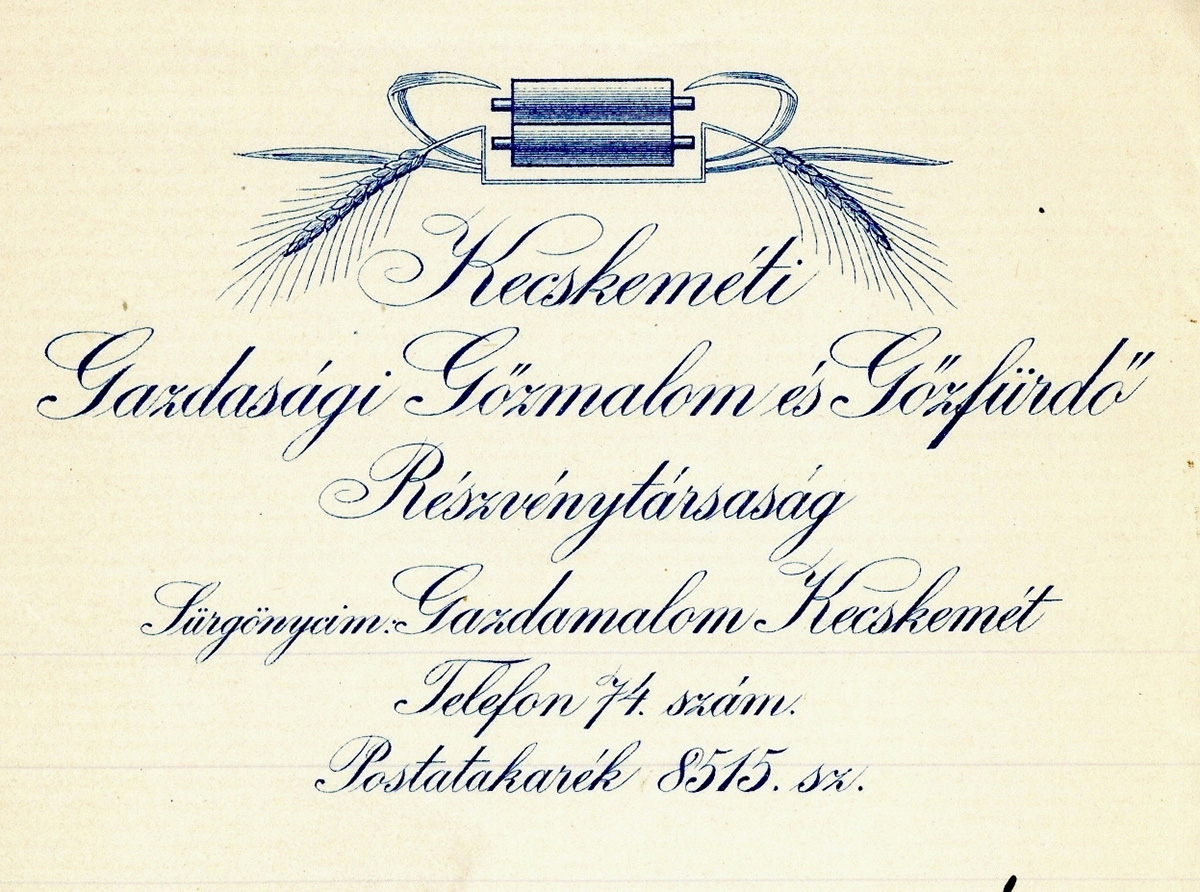 Kecskeméti
Gazdasági Gőzmalom és Gőzfürdő
Részvénytársaság
Sürgönycim: Gazdamalom Kecskemét
Telefon 74. szám.
Postatakarék 8515. sz.